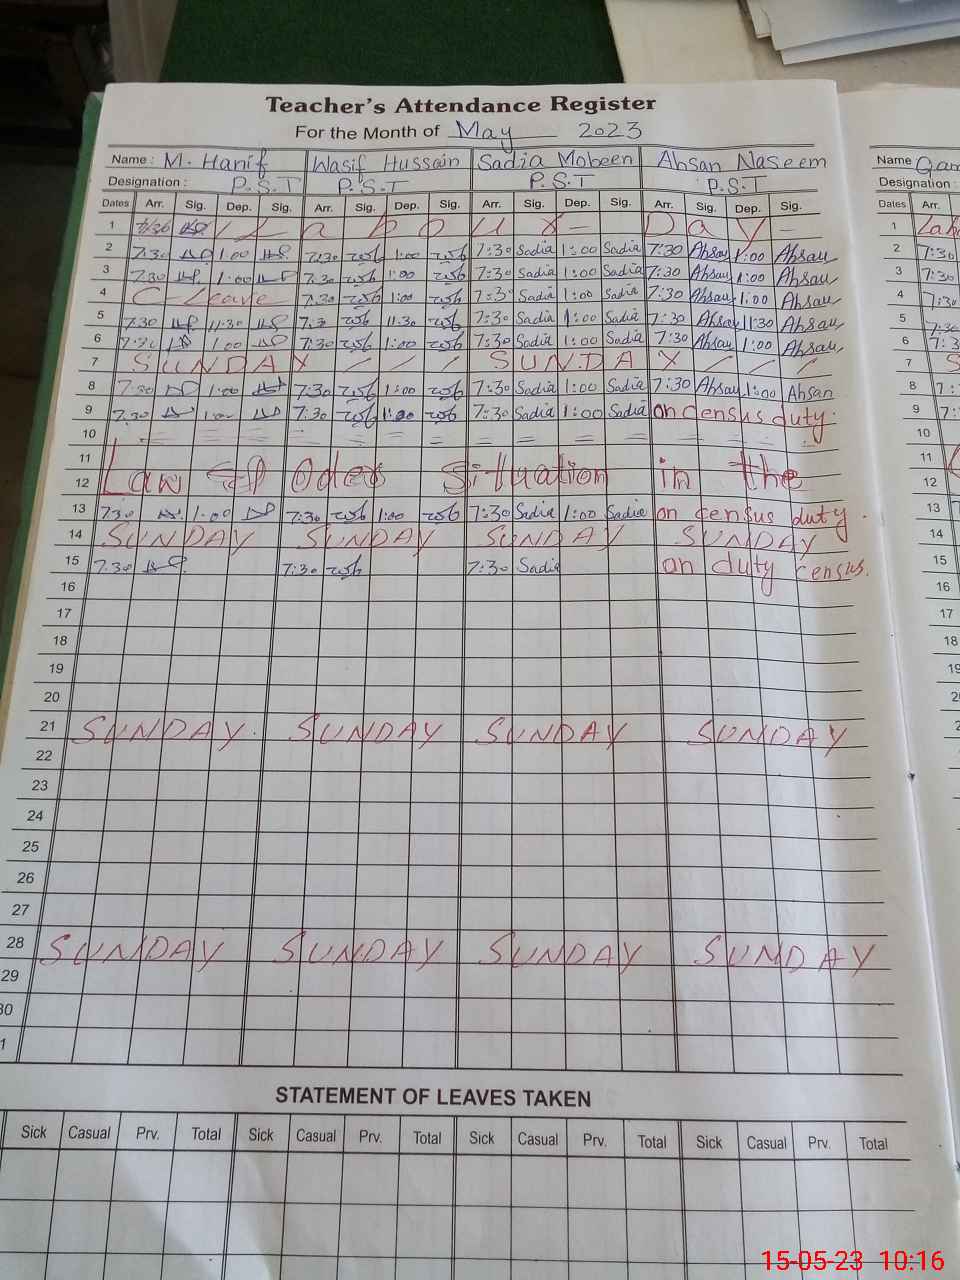 Teacher's Attendance Register
For the Month of May 2023
Name : M. Hanif Wasif Hussain Sadia Mobeen Ahsan Naseem Name
Designation : P.S.T P.S.T P.S.T P.S.T Designation :
Dates Arr. Sig. Dep. Sig. Arr. Sig. Dep. Sig. Arr. Sig. Dep. Sig. Arr. Sig. Dep. Sig. Dates Arr.
1 Labour - Day - 1
2 7:30 1:00 7:30 1:00 7:30 Sadia 1:00 Sadia 7:30 Ahsan 1:00 Ahsan 2 7:30
3 7:30 1:00 7:30 1:00 7:30 Sadia 1:00 Sadia 7:30 Ahsan 1:00 Ahsan 3 7:30
4 C-Leave 7:30 1:00 7:30 Sadia 1:00 Sadia 7:30 Ahsan 1:00 Ahsan 4 7:30
5 7:30 11:30 7:3 11:30 7:30 Sadia 1:00 Sadia 7:30 Ahsan 11:30 Ahsan 5 7:30
6 7:30 1:00 7:30 1:00 7:30 Sadia 1:00 Sadia 7:30 Ahsan 1:00 Ahsan 6 7:3
7 SUNDAY SUNDAY 7 S
8 7:30 1:00 7:30 1:00 7:30 Sadia 1:00 Sadia 7:30 Ahsan 1:00 Ahsan 8
9 7:30 1:00 7:30 1:00 7:30 Sadia 1:00 Sadia on census duty. 9
10 = = = = = = = = 10
11 11
12 Law Oder Situation in the 12
13 7:30 1:00 7:30 1:00 7:30 Sadia 1:00 Sadia on census duty. 13
14 SUNDAY SUNDAY SUNDAY SUNDAY 14
15 7:30 7:30 7:30 Sadia on duty census. 15
16 16
17 17
18 18
19 19
20 20
21 SUNDAY. SUNDAY SUNDAY SUNDAY
22
23
24
25
26
27
28 SUNDAY SUNDAY SUNDAY SUNDAY
29
30
1
STATEMENT OF LEAVES TAKEN
Sick Casual Prv. Total Sick Casual Prv. Total Sick Casual Prv. Total Sick Casual Prv. Total
15-05-23 10:16